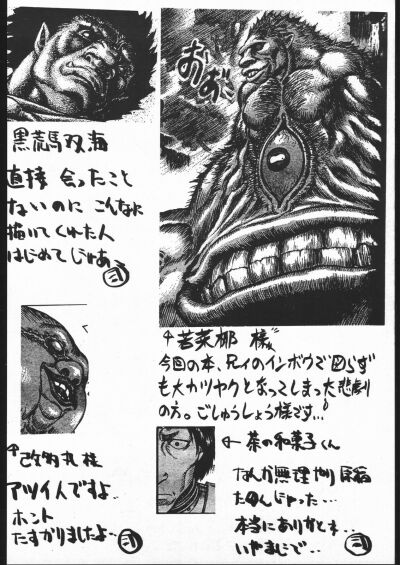 おおお
直接 会ったこと
ないのに こんなに
描いてくれた人
はじめてじゃあ
弐
様
今回の本、兄ィのインボウで図らず
も大カツヤクとなってしまった大悲劇
の方。ごしゅうしょう様です...
茶の和菓子くん
なんか無理やり原稿
たのんじゃった...
本当にありがとネ..
いやまじで..
弐
アツイ人ですよ..
ホント
たすかりましたよ..
弐